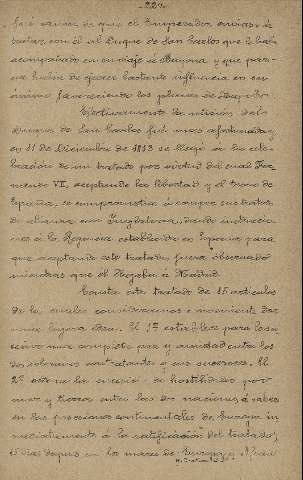 - 220 -
fué causa de que el Emperador enviase á
tratar con él al Duque de San Carlos que le había
acompañado en su viaje a Bayona y que
hubo de ejercer bastante influencia en su
ánimo favoreciendo los planes de Napoleón.
Efectivamente la misión del
Duque de San Carlos fué más afortunada y
en 11 de Diciembre de 1813 se llegó a la cele-
bración de un tratado por virtud del cual Fer-
nando VI, aceptando la libertad y el trono de
España, se comprometía á romper su tratado
de alianza con Inglaterra, dando instruccio-
nes á la Regencia establecida en España para
que aceptando este tratado fuera observado
mientras que él llegaba á Madrid.
Consta este tratado de 15 artículos
de los cuales
una ligera idea. El 1º establece para lo su-
cesivo una completa paz y amistad entre los
dos soberanos contratantes y sus sucesores. El
2º ordena la cesación de hostilidades por
mar y tierra entre las dos naciones á saber:
en las posesiones continentales de Europa in-
mediatamente á la ratificación del tratado;
15 días después en los mares de Europa y